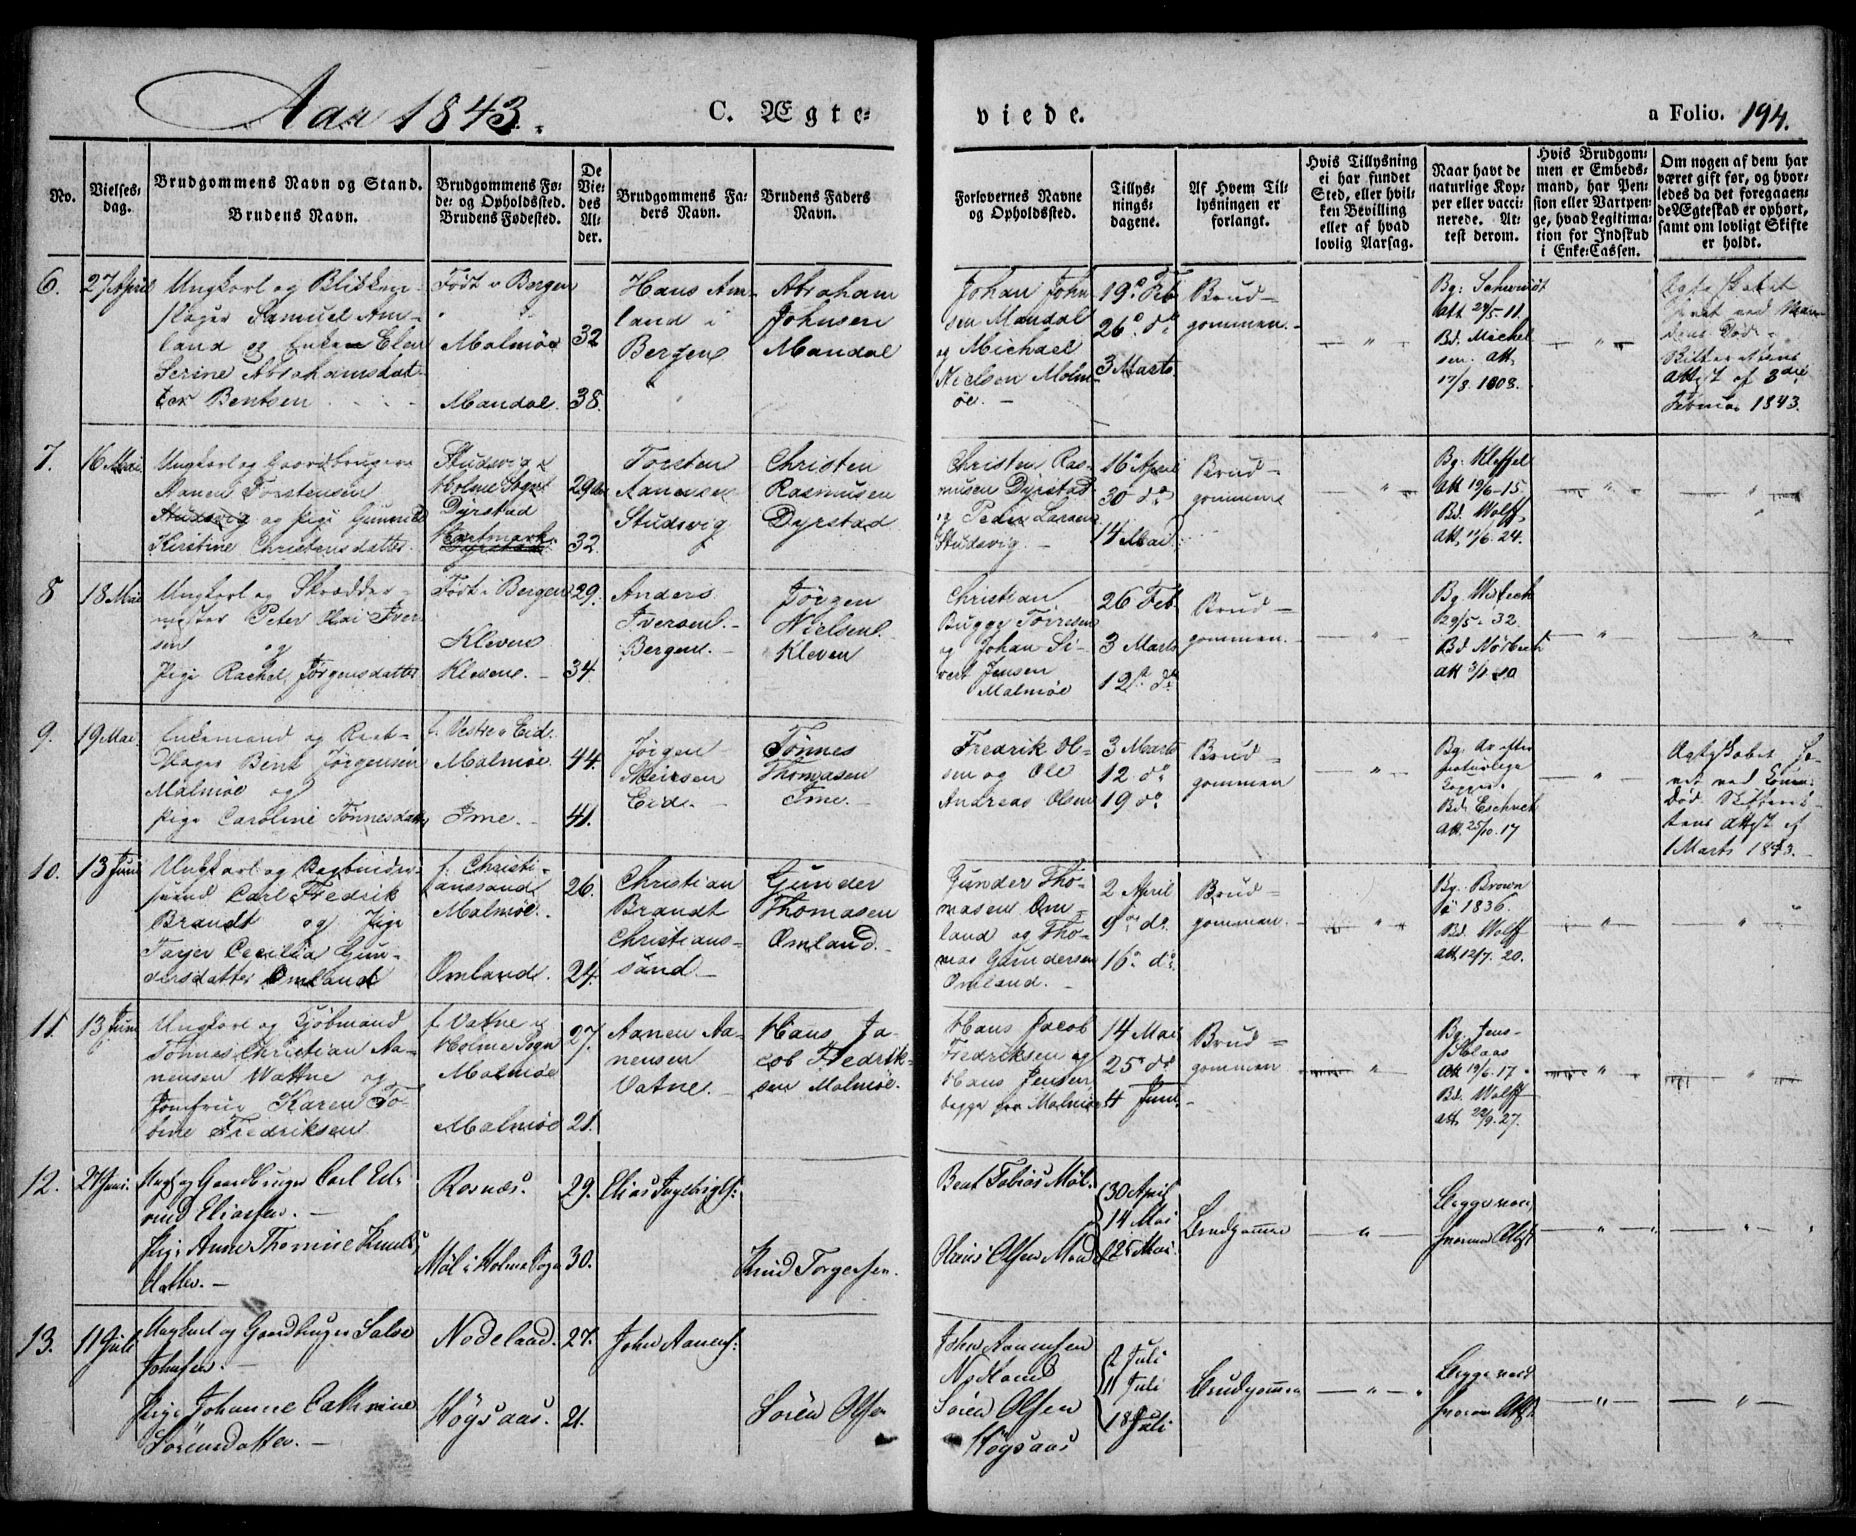 Aar 1843.
C. Ægte-
viede.
a Folio. 194.
No.
Vielses-
dag.
Brudgommens Navn og Stand.
Brudens Navn.
Brudgommens Fø-
de- og Opholdssted.
Brudens Fødested.
De
Vie-
des
Al-
der.
Brudgommens Fa-
ders Navn.
Brudens Faders
Navn.
Forlovernes Navne
og Opholdssted.
Tillys-
nings-
dagene.
Af Hvem Til-
lysningen er
forlangt.
Hvis Tillysning
ei har fundet
Sted, eller hvil-
ken Bevilling
eller af hvad
lovlig Aarsag.
Naar havt de
naturlige Kop-
per eller vacci-
nerede. At-
test derom.
Hvis Brudgom-
men er Embeds-
mand, har Pen-
sion eller Vartpen-
ge, hvad Legitima-
tion for Indskud
i Enke-Cassen.
Om nogen af dem har
været gift før, og hvor-
ledes da det foregaaen-
de Ægteskab er ophørt,
samt om lovligt Skifte
er holdt.
6.
27 April
Ungkarl og Blikken-
slager Samuel Am-
land og Enken Elen
Serine Abrahamsdat-
ter Bentsen
Født i Bergen
Malmøe
Mandal.
32
38.
Hans Am-
land i
Bergen
Abraham
Johnsen
Mandal
Johan John
sen Mandal
og Michael
Nielsen Malm-
øe.
19 Feb
26 d
3 Marts
Brud-
gommen.
Att 24/5-11.
Bd. Michel
sen. Att.
17/8. 1808.
Attest af 3die
Februar 1843.
7.
16 Mai
Ungkarl og Gaardbruger
Aanen Torstensen
Studsvig og Pige Gunnild
Kirstine Christensdatter.
Studsvig i
Holme Sogn
Dyrstad
Hartmark
Dyrstad
29
32.
Torsten
Aanensen
Studsvig
Christen
Rasmusen
Dyrstad
Christen Ras-
musen Dyrstad
og Peder Larsen
Studsvig.
16 April
30 d
14 Mai
Brud-
gommen
Bg. Kleffel
Att 19/6-15.
Bd. Wolff
Att. 11/6. 24.
8
18 Mai
Ungkarl og Skrædder-
mester Peter Kai Iver
sen og
Pige Rachel Jørgensdatter
Født i Bergen
Kleven
Kleven.
29.
34.
Anders
Iversen
Bergen.
Jørgen
Nielsen
Kleven
Christian
Bugge Torresen
og Johan Si-
vert Jensen
Malmøe
26 Feb.
3 Marts
12 d
Brud-
gommen.
29/5-32.
9.
19 Mai
Enkemand og
Bent Jørgensen
Malmøe og
Pige Caroline Tønnesdatter
f. Vestre Eid.
Malmøe.
Ime.
44.
41.
Jørgen
Eid.
Tønnes
Thomasen
Ime.
Fredrik Ol-
sen og Ole
Andreas Olsen
3 Marts
12 d
19 d
Brud-
gommen
Bg. Ar efter
naturlige
Kopper.
Bd. Eschech
Att. 25/10. 17
Ægteskabet he-
vet ved Konen
Død
Attest af
1 Marts 1843.
10.
13 Juni
Ungkarl og Bogbinder-
svend Carl Fredrik
Brandt og Pige
Tarjer Cecilia Gun-
dersdatter Omland
f. Christi-
anssand
Malmøe.
Omland.
26.
24.
Christian
Brandt
Christians-
sand.
Gunder
Thomasen
Omland.
Gunder Tho-
masen Om-
land og Tho-
mas Gundersen
Omland.
2 April
9 d.
16 d.
Brud-
gommen.
Bg. Brown
1836.
Bd. Wolff
Att. 12/7. 20.
11.
13 Juni
Ungkarl og Kjøbmand
Tønnes Christian Aa-
nensen Wattne og
Jomfrue Karen To-
bine Fredriksen
f. Vatne i
Holme Sogn
Malmøe
Malmøe
27.
21.
Aanen Aa-
nensen
Vatne.
Hans Ja-
cob Fredrik-
sen Malmøe.
Hans Jacob
Fredriksen og
Hans Jensen
begge fra Malmøe
14 Mai
25 d
4 Juni
Brud-
gommen
Bg. Jens-
Klaas
Att 19/6. 17
Bd. Wolff
Att 22/9. 27.
12.
27 Juni.
Ungk og Gaardbruger Carl Ed-
vind Eliassen.
Pige Anne Thomine Knuds
datter.
Rosnæs.
Møl i Holme Sogn
29.
30.
Elias
Knud Torgersen.
Bent Tobias Møl.
30 April
14 Mai
25 Mai.
Brudgommen
Begge vac.
13.
11 Juli
Ungkarl og Gaardbruger Salve
Johnsen.
Pige Johanne Cathrine
Sörensdatter.
Nodeland.
Høgsaas.
27.
21.
John Aanens:
Sören Olsen
John Aanensen
Nodland
Sören Olsen
Høgsaas
2 Juli
11 Juli
18 Juli
Brudgommen
Begge vac